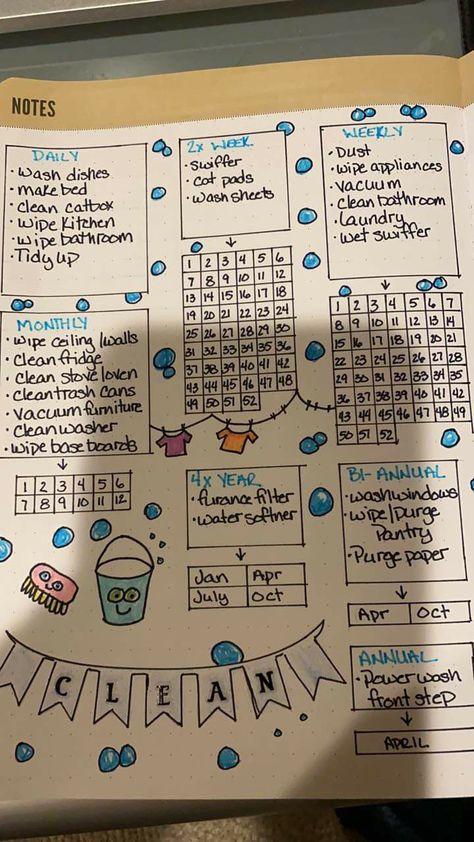 NOTES
DAILY
• wash dishes
• make bed
• clean catbox
• wipe kitchen
• wipe bathroom
• Tidy up
2x WEEK
• swiffer
• cat pads
• wash sheets
1 2 3 4 5 6
7 8 9 10 11 12
13 14 15 16 17 18
19 20 21 22 23 24
25 26 27 28 29 30
31 32 33 34 35 36
37 38 39 40 41 42
43 44 45 46 47 48
49 50 51 52
WEEKLY
• Dust
• wipe appliances
• vacuum
• clean bathroom
• laundry
• wet swiffer
1 2 3 4 5 6 7
8 9 10 11 12 13 14
15 16 17 18 19 20 21
22 23 24 25 26 27 28
29 30 31 32 33 34 35
36 37 38 39 40 41 42
43 44 45 46 47 48 49
50 51 52
MONTHLY
• wipe ceiling/walls
• clean fridge
• clean stove/oven
• clean trash cans
• vacuum furniture
• clean washer
• wipe base boards
1 2 3 4 5 6
7 8 9 10 11 12
4x YEAR
• furance filter
• water softner
Jan Apr
July Oct
BI-ANNUAL
• wash windows
• wipe/purge
Pantry
• Purge paper
Apr Oct
ANNUAL
• Power wash
front step
APRIL
CLEAN